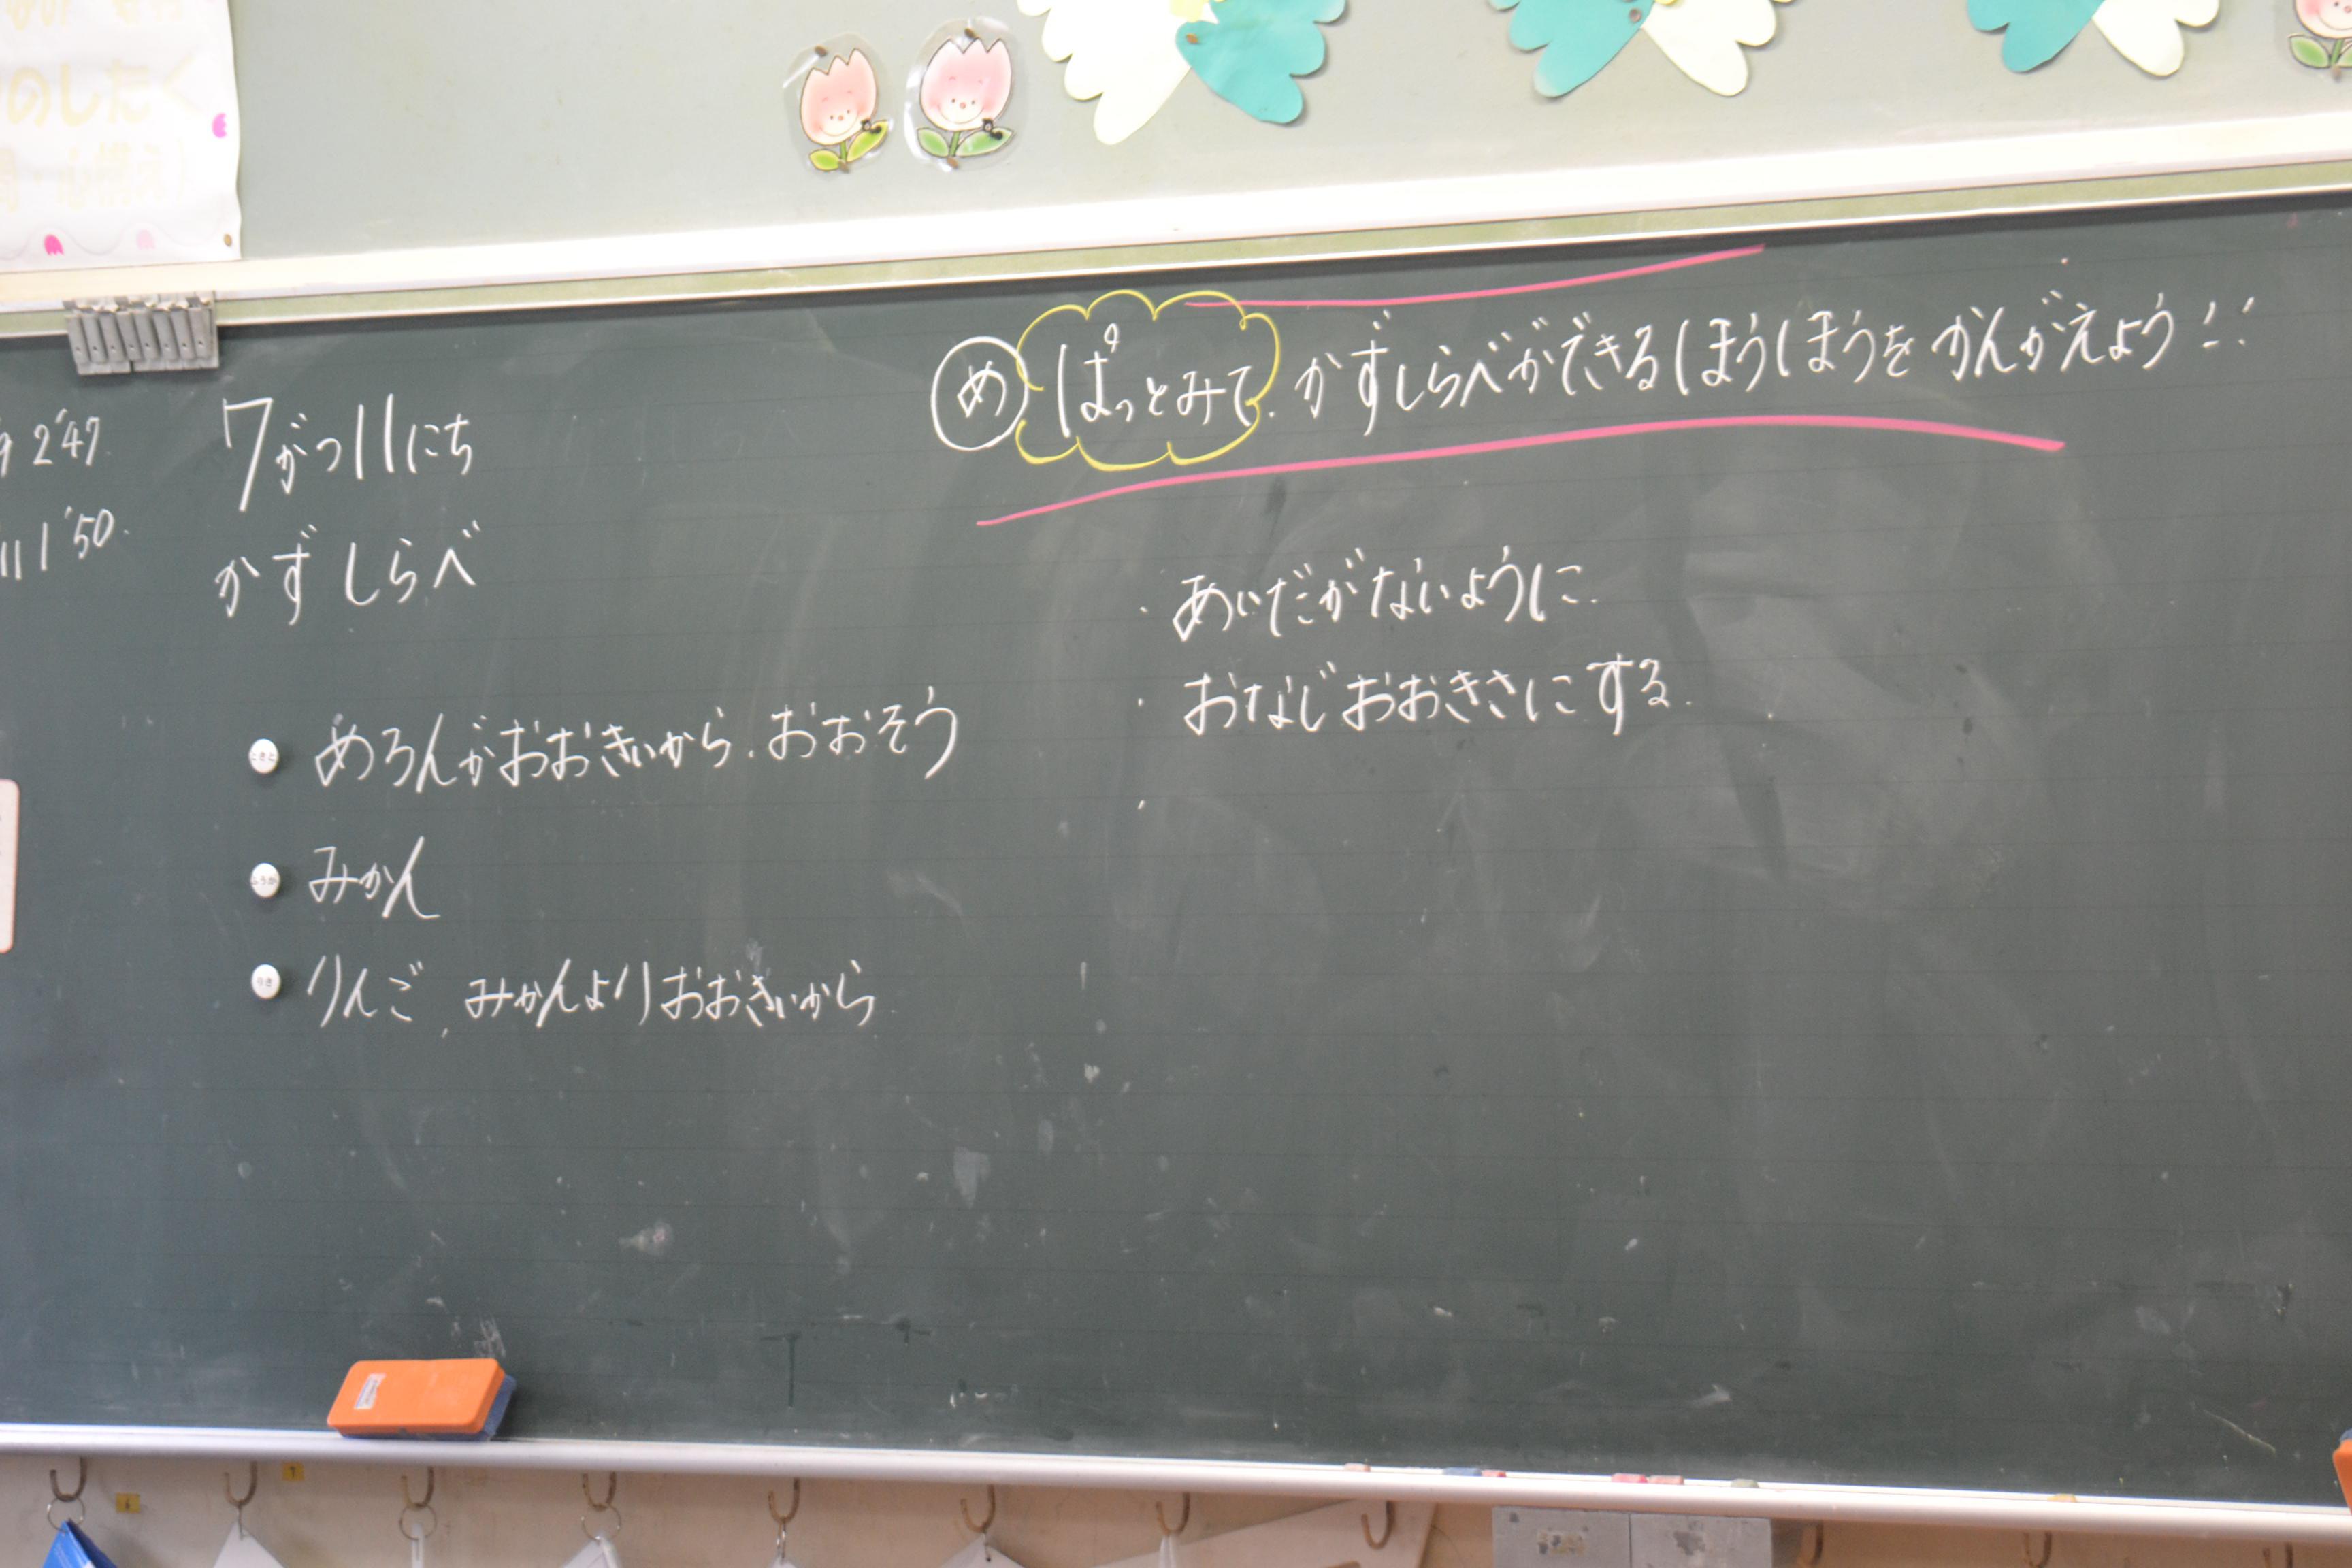 のしたく
2'47
11 1'50.
7がつ11にち
かずしらべ
めろんがおおきいから.おおそう
みかん
りんご、みかんよりおおきいから
め ぱっとみて.かずしらべができるしほうしほうをかんがえよう!!
・あいだがないように.
・おなじおおきさにする.
・